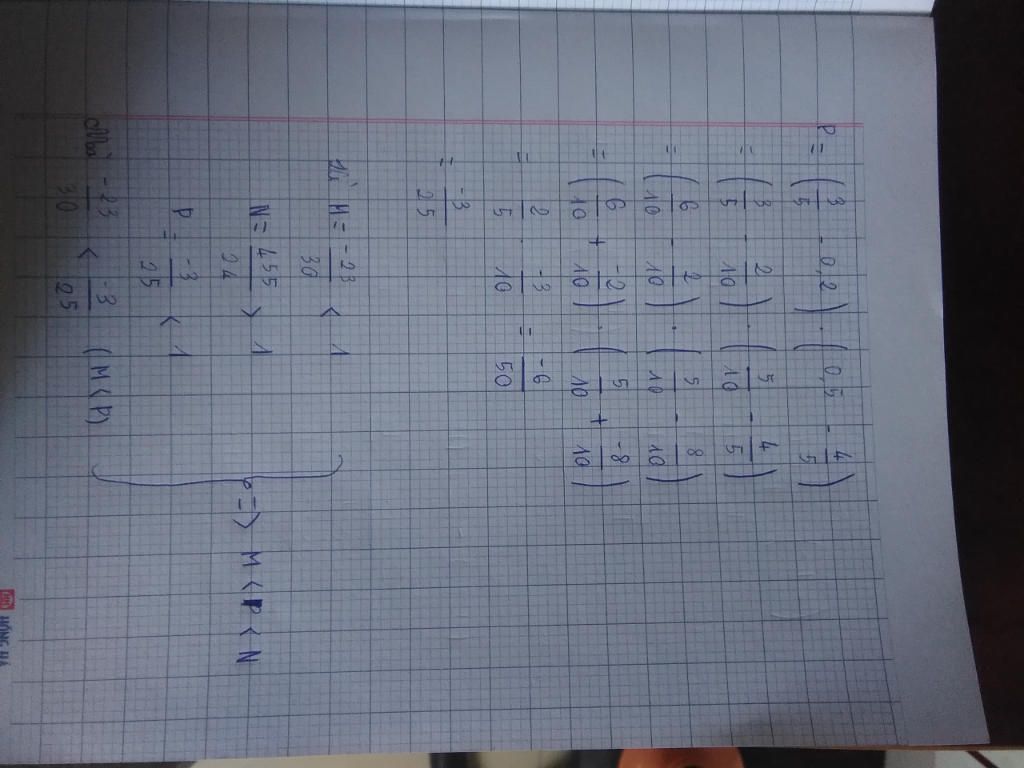 P = (3/5 - 0,2) . (0,5 - 4/5)
= (3/5 - 2/10) . (5/10 - 4/5)
= (6/10 - 2/10) . (5/10 - 8/10)
= (6/10 + -2/10) . (5/10 + -8/10)
= 2/5 . -3/10 = -6/50
= -3/25
Vì M = -23/30 < 1
N = 455/24 > 1
P = -3/25 < 1
=> M < P < N
Mà -23/30 < -3/25 (M < P)
HỒNG HÀ